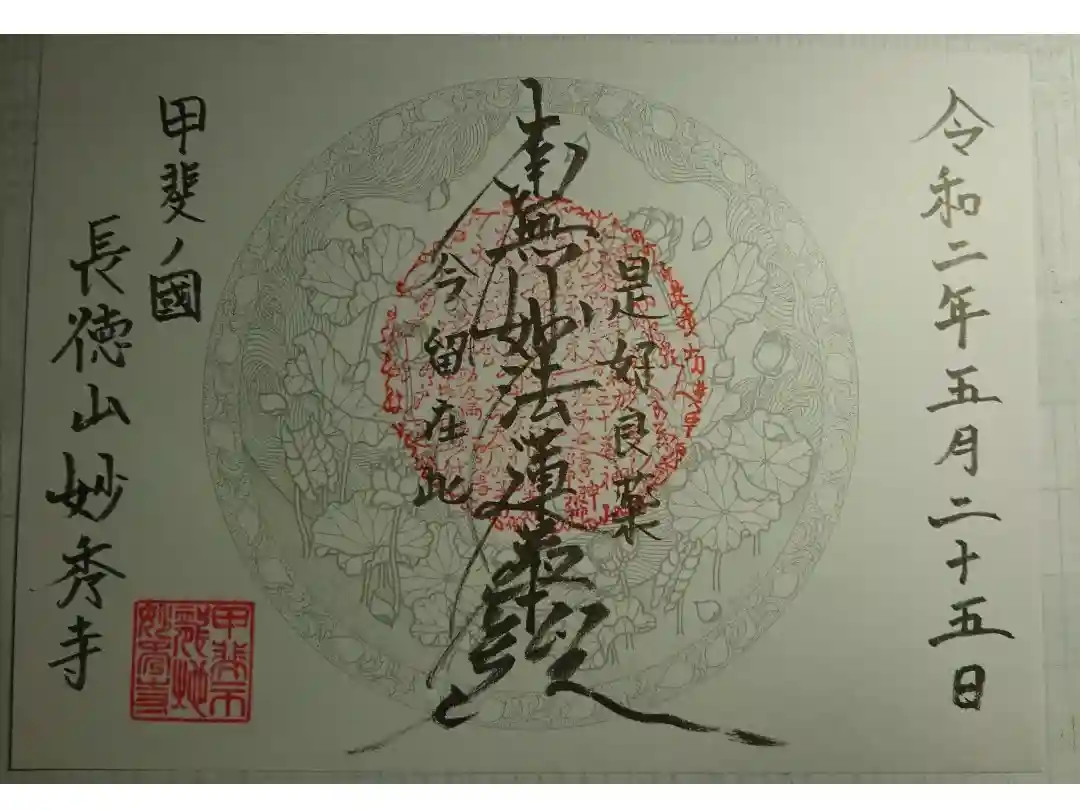 令和二年五月二十五日
是好良薬
南無妙法蓮華經
今留在此
甲斐ノ國
長徳山妙秀寺
甲斐市
龍地
妙秀寺